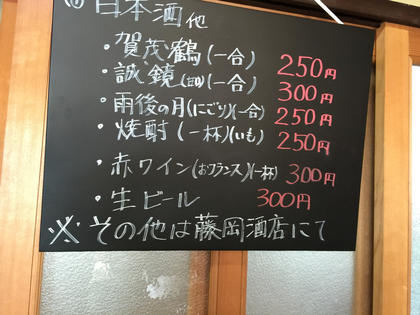 日本酒他
・賀茂鶴(一合) 250円
・誠鏡(甘口)(一合) 300円
・雨後の月(にごり)(一合) 250円
・焼酎(一杯)(いも) 250円
・赤ワイン(おフランス)(一杯) 300円
・生ビール 300円
※その他は藤岡酒店にて